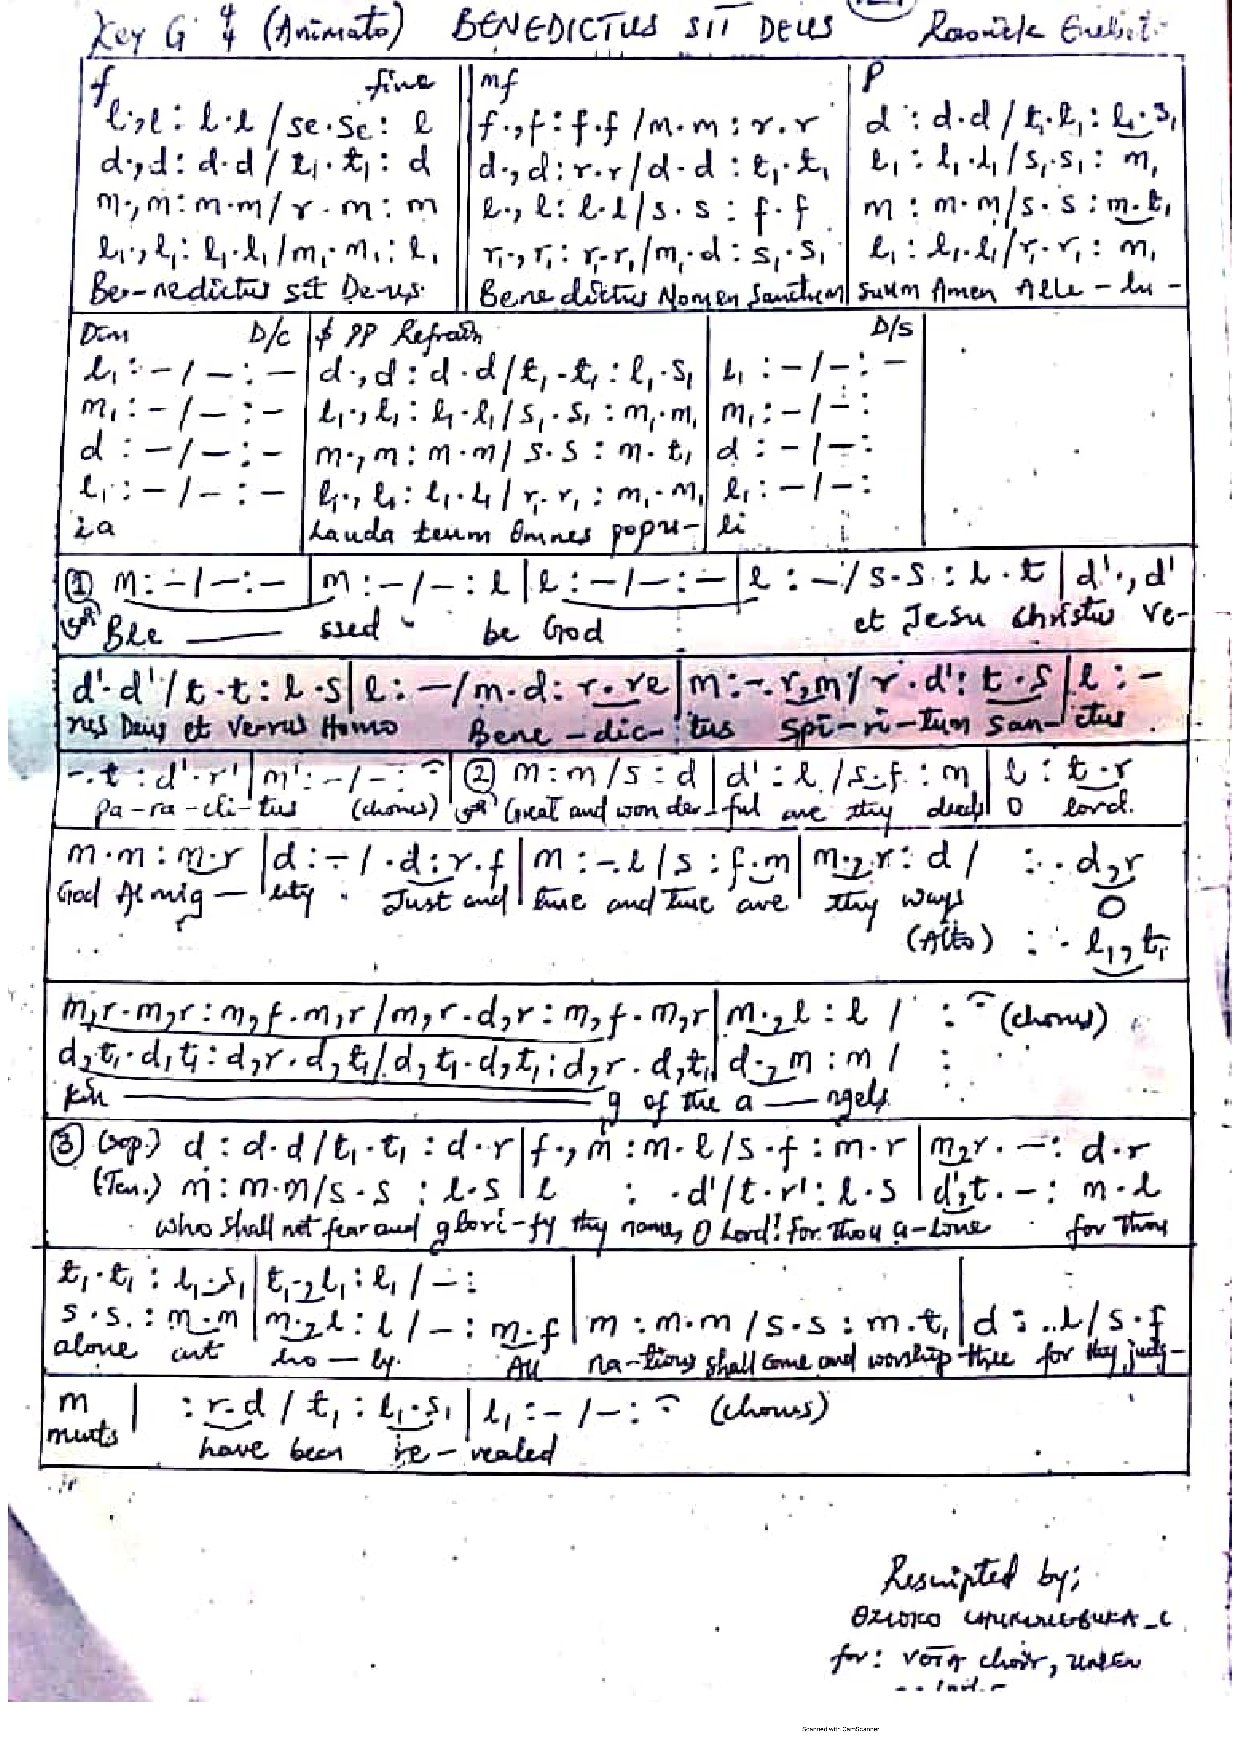 Key G 4/4 (Animato) BENEDICTUS SIT DEUS
f fine mf P
l.,l : l.l / se.se : l f.,f : f.f / m.m : r.r d : d.d / t₁.l₁ : l₁.s₁
d.,d : d.d / t₁.t₁ : d d.,d : r.r / d.d : t₁.t₁ l₁ : l₁.l₁ / s₁.s₁ : m₁
m.,m : m.m / r.m : m l.,l : l.l / s.s : f.f m : m.m / s.s : m.t₁
l₁.,l₁ : l₁.l₁ / m₁.m₁ : l₁ r₁.,r₁ : r₁.r₁ / m₁.d : s₁.s₁ l₁ : l₁.l₁ / r₁.r₁ : m₁
Be-nedictus sit De-us. Benedictus Nomen Sanctum suum Amen Alle-lu-
Dim D/c $ PP Refrain D/s
l₁ : - / - : - d.,d : d.d / t₁.t₁ : l₁.s₁ l₁ : - / - : -
m₁ : - / - : - l₁.,l₁ : l₁.l₁ / s₁.s₁ : m₁.m₁ m₁ : - / - :
d : - / - : - m.,m : m.m / s.s : m.t₁ d : - / - :
l₁ : - / - : - l₁.,l₁ : l₁.l₁ / r₁.r₁ : m₁.m₁ l₁ : - / - :
ia Lauda teum Omnes popu- li
① m : - / - : - | m : - / - : l | l : - / - : - | l : - / s.s : l.t | d'.,d'
Ble ssed be God et Jesu Christus Ve-
d'.d' / t.t : l.s | l : - / m.d : r.re | m : -.r,m / r.d' : t.s | l : -
rus Deus et Verrus Homo Bene-dic-tus Spi-ri-tum San-ctus
-.t : d'.r' | m' : - / - : | ② m : m / s : d | d' : l / s.f : m | l : t.r
pa-ra-cli-tus (chorus) Great and wonder-ful are thy deeds O Lord.
m.m : m.r | d : - / .d : r.f | m : -.l / s : f.m | m.,r : d / : . d,r
God Almig-hty. Just and true and true are thy ways O
(Alto) : . l₁,t₁
m,r.m,r : m,f.m,r / m,r.d,r : m,f.m,r | m.,l : l / : (chorus)
d,t₁.d,t₁ : d,r.d,t₁ / d,t₁.d,t₁ : d,r.d,t₁ | d.,m : m / :
Kin g of the a ngels
③ (sop.) d : d.d / t₁.t₁ : d.r | f.,m : m.l / s.f : m.r | m,r.- : d.r
(Ten.) m : m.m / s.s : l.s | l : .d' / t.r' : l.s | d',t.- : m.l
who shall not fear and glori-fy thy name, O Lord! For thou a-lone for thou
t₁.t₁ : l₁.s₁ | t₁.,l₁ : l₁ / - :
s.s : m.m | m.,l : l / - : m.f | m : m.m / s.s : m.t₁ | d : ..l / s.f
alone art ho-ly. All na-tions shall come and worship thee for thy judg-
m | : r.d / t₁ : l₁.s₁ | l₁ : - / - : (chorus)
ments have been re-vealed
Rescripted by;
for: VOTA choir,
Scanned with CamScanner